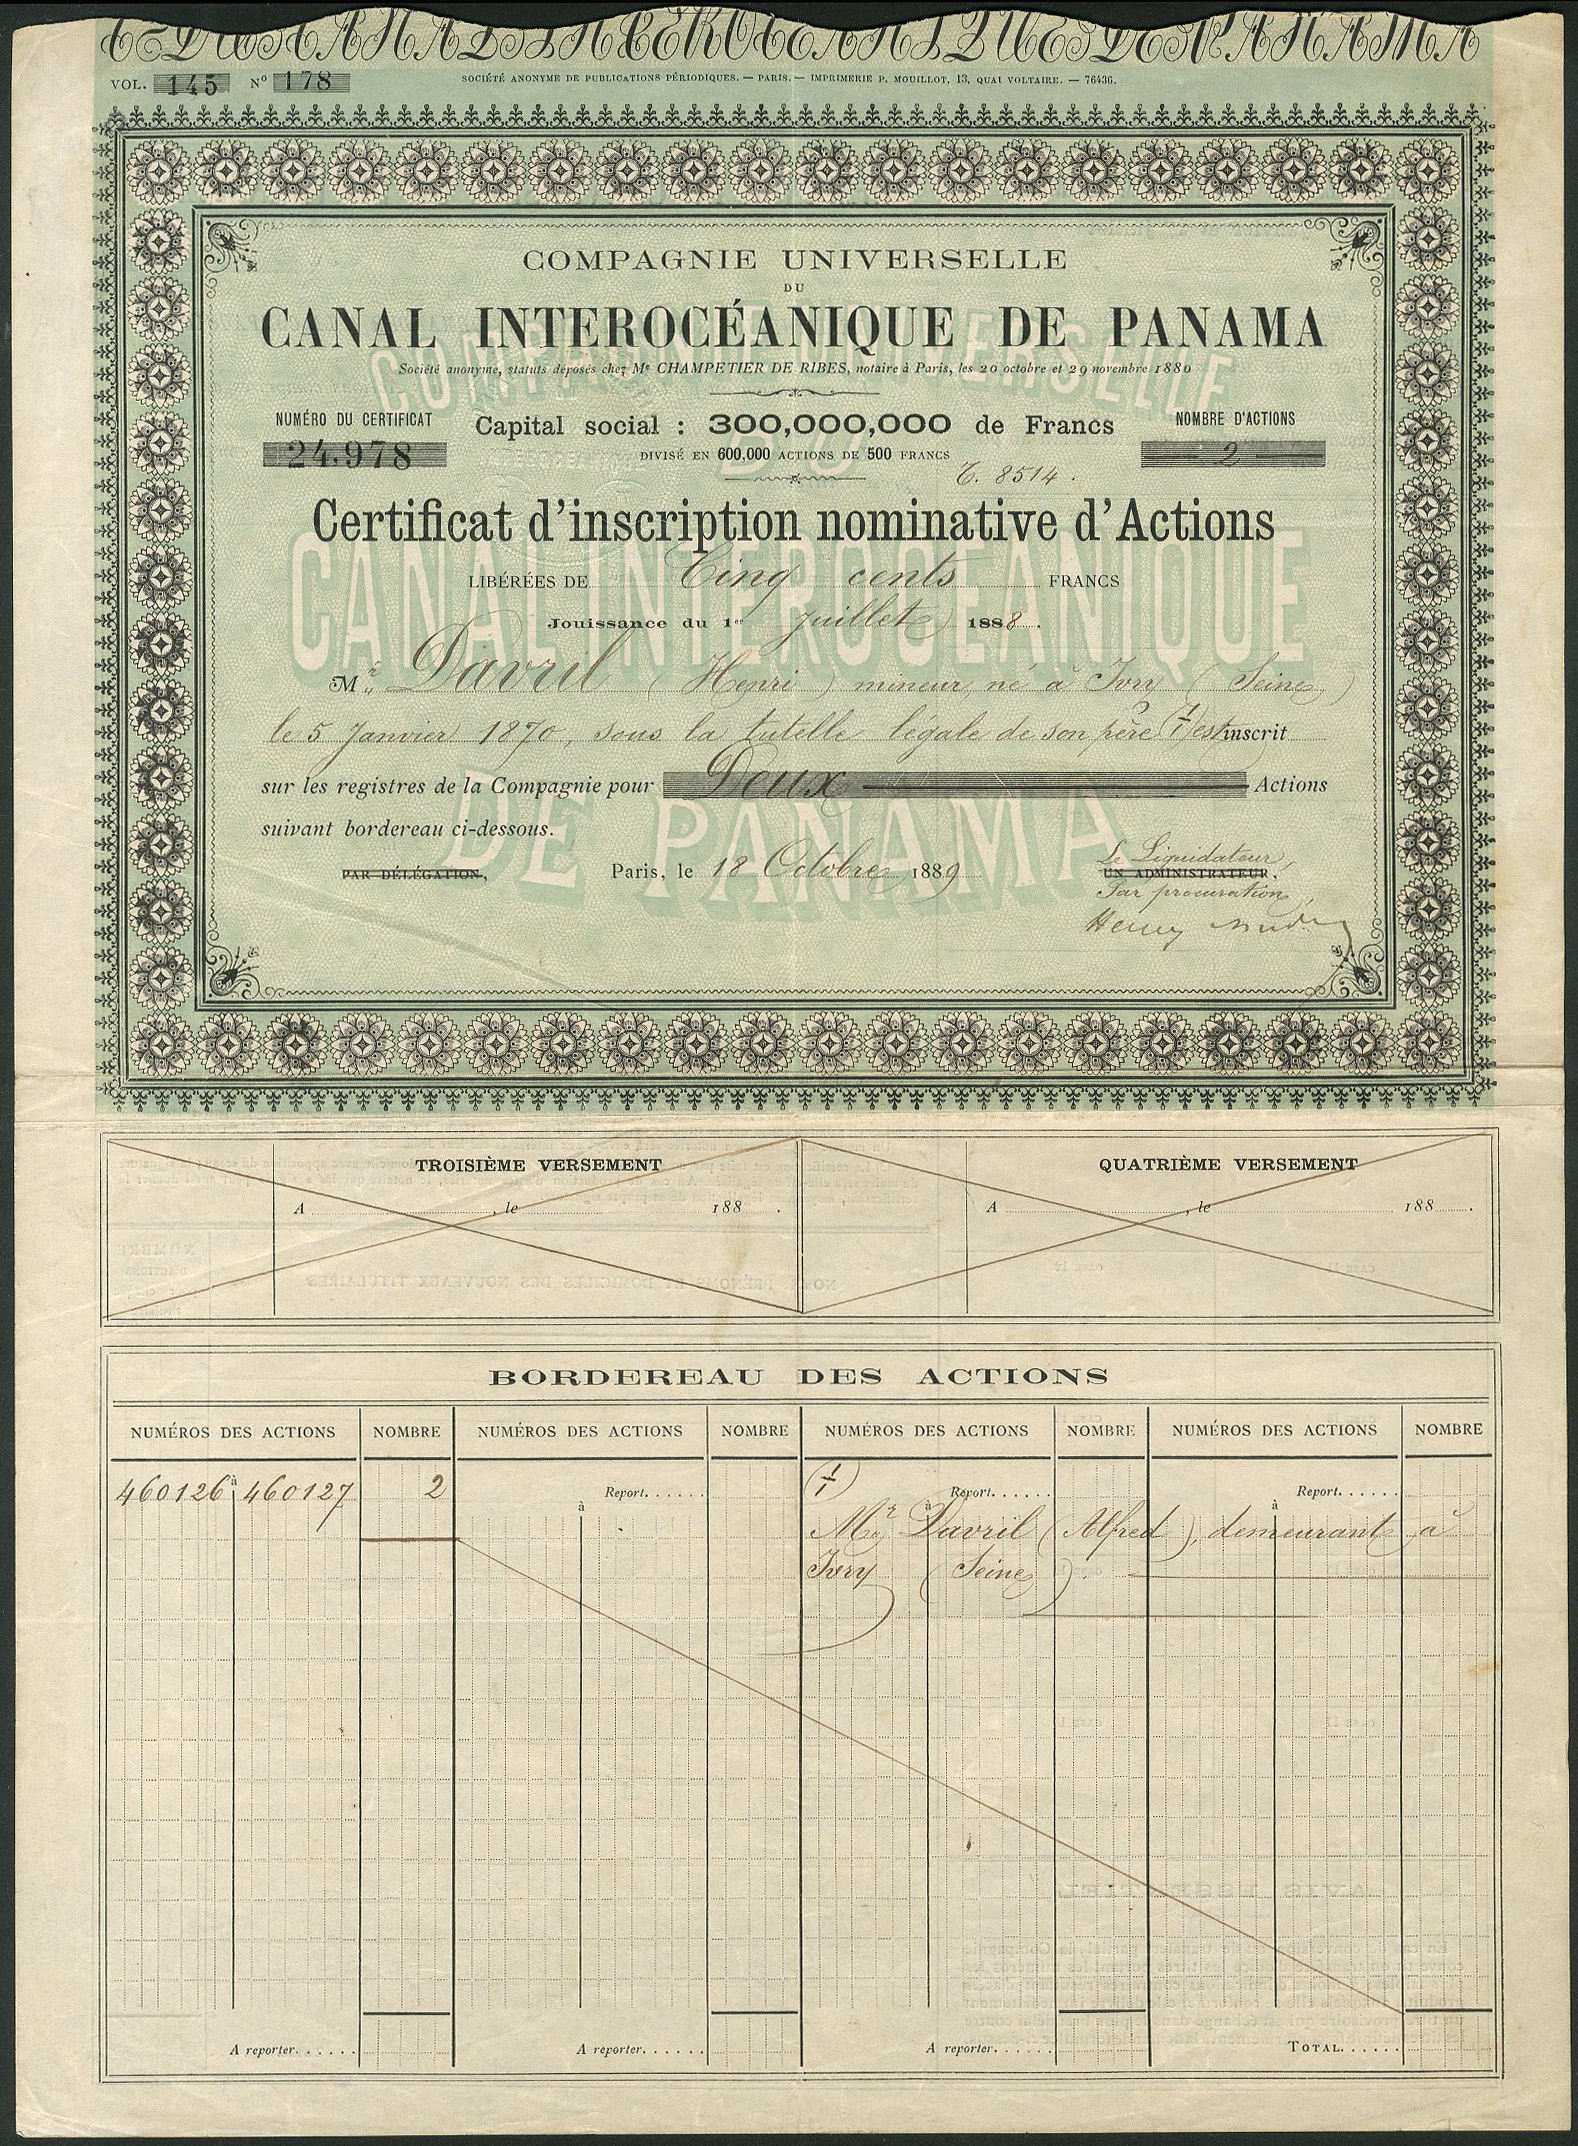 VOL. 145 Nº 178 SOCIÉTÉ ANONYME DE PUBLICATIONS PÉRIODIQUES. — PARIS. — IMPRIMERIE P. MOUILLOT, 13, QUAI VOLTAIRE. — 76436.
COMPAGNIE UNIVERSELLE
DU
CANAL INTEROCÉANIQUE DE PANAMA
Société anonyme, statuts déposés chez Me CHAMPETIER DE RIBES, notaire à Paris, les 20 octobre et 29 novembre 1880
NUMÉRO DU CERTIFICAT
24,978
Capital social : 300,000,000 de Francs
DIVISÉ EN 600,000 ACTIONS DE 500 FRANCS
NOMBRE D'ACTIONS
2
C. 8514.
Certificat d'inscription nominative d'Actions
LIBÉRÉES DE Cinq cents FRANCS
Jouissance du 1er Juillet 1888.
Mr Davril (Henri) mineur né à Ivry (Seine)
le 5 Janvier 1870, sous la tutelle légale de son père (1/1) est inscrit
sur les registres de la Compagnie pour Deux Actions
suivant bordereau ci-dessous.
PAR DÉLÉGATION,
Paris, le 18 Octobre 1889
Le Liquidateur,
UN ADMINISTRATEUR,
Par procuration,
TROISIÈME VERSEMENT
A , le 188 .
QUATRIÈME VERSEMENT
A , le 188 .
BORDEREAU DES ACTIONS
NUMÉROS DES ACTIONS NOMBRE NUMÉROS DES ACTIONS NOMBRE NUMÉROS DES ACTIONS NOMBRE NUMÉROS DES ACTIONS NOMBRE
460126 à 460127 2 Report...... (1/1) Report...... Report......
à à à
Mr Davril (Alfred), demeurant à
Ivry (Seine).
A reporter...... A reporter...... A reporter...... TOTAL......